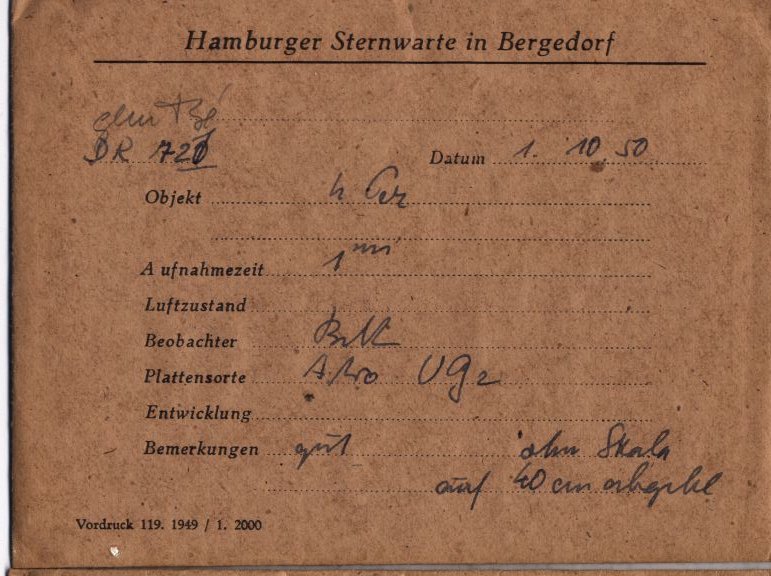 Hamburger Sternwarte in Bergedorf
DR 721
Datum 1. 10. 50
Objekt h Cer
Aufnahmezeit 1 min
Luftzustand
Beobachter
Plattensorte UG2
Entwicklung
Bemerkungen gut ohne Skala
auf 40 cm
Vordruck 119. 1949 / 1. 2000